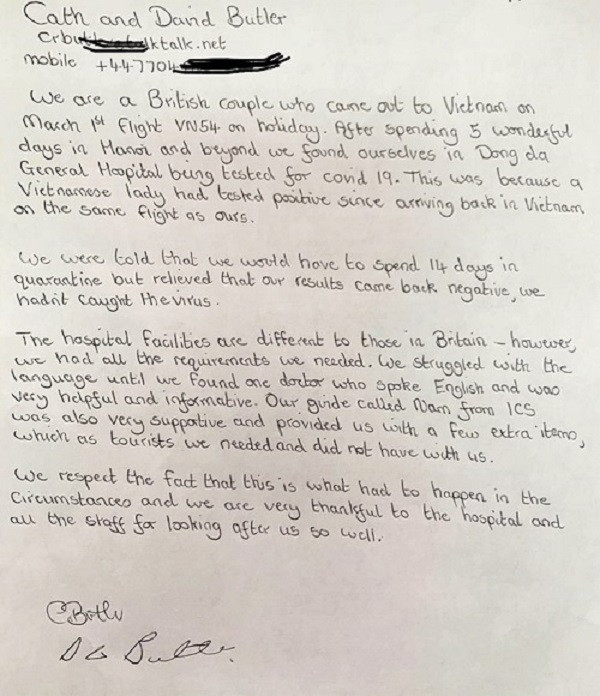 Cath and David Butler
crbu lktalk.net
mobile +447704
We are a British couple who came out to Vietnam on
March 1st flight VN54 on holiday. After spending 5 wonderful
days in Hanoi and beyond we found ourselves in Dong da
General Hospital being tested for covid 19. This was because a
Vietnamese lady had tested positive since arriving back in Vietnam
on the same flight as ours.
We were told that we would have to spend 14 days in
quarantine but relieved that our results came back negative, we
hadn't caught the virus.
The hospital facilities are different to those in Britain – however,
we had all the requirements we needed. We struggled with the
language until we found one doctor who spoke English and was
very helpful and informative. Our guide called Nam from ICS
was also very supportive and provided us with a few extra items,
which as tourists we needed and did not have with us.
We respect the fact that this is what had to happen in the
circumstances and we are very thankful to the hospital and
all the staff for looking after us so well.
CButler
D G Butler.